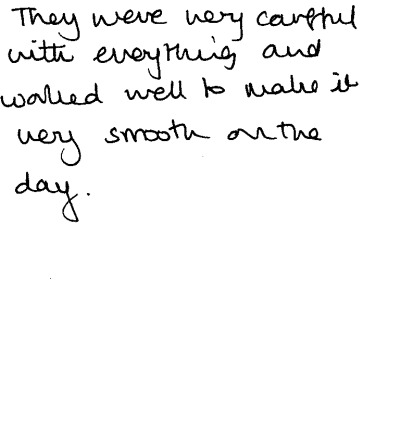 They were very careful
with everything and
worked well to make it
very smooth on the
day.